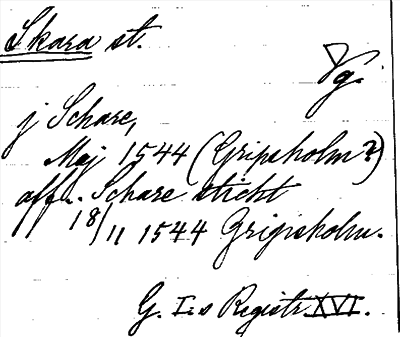 Skara st.
Vg.
j Schare,
Maj 1544 (Gripsholm?)
aff Schare sticht
18/11 1544 Gripisholm.
G. I:s Registr. XVI.